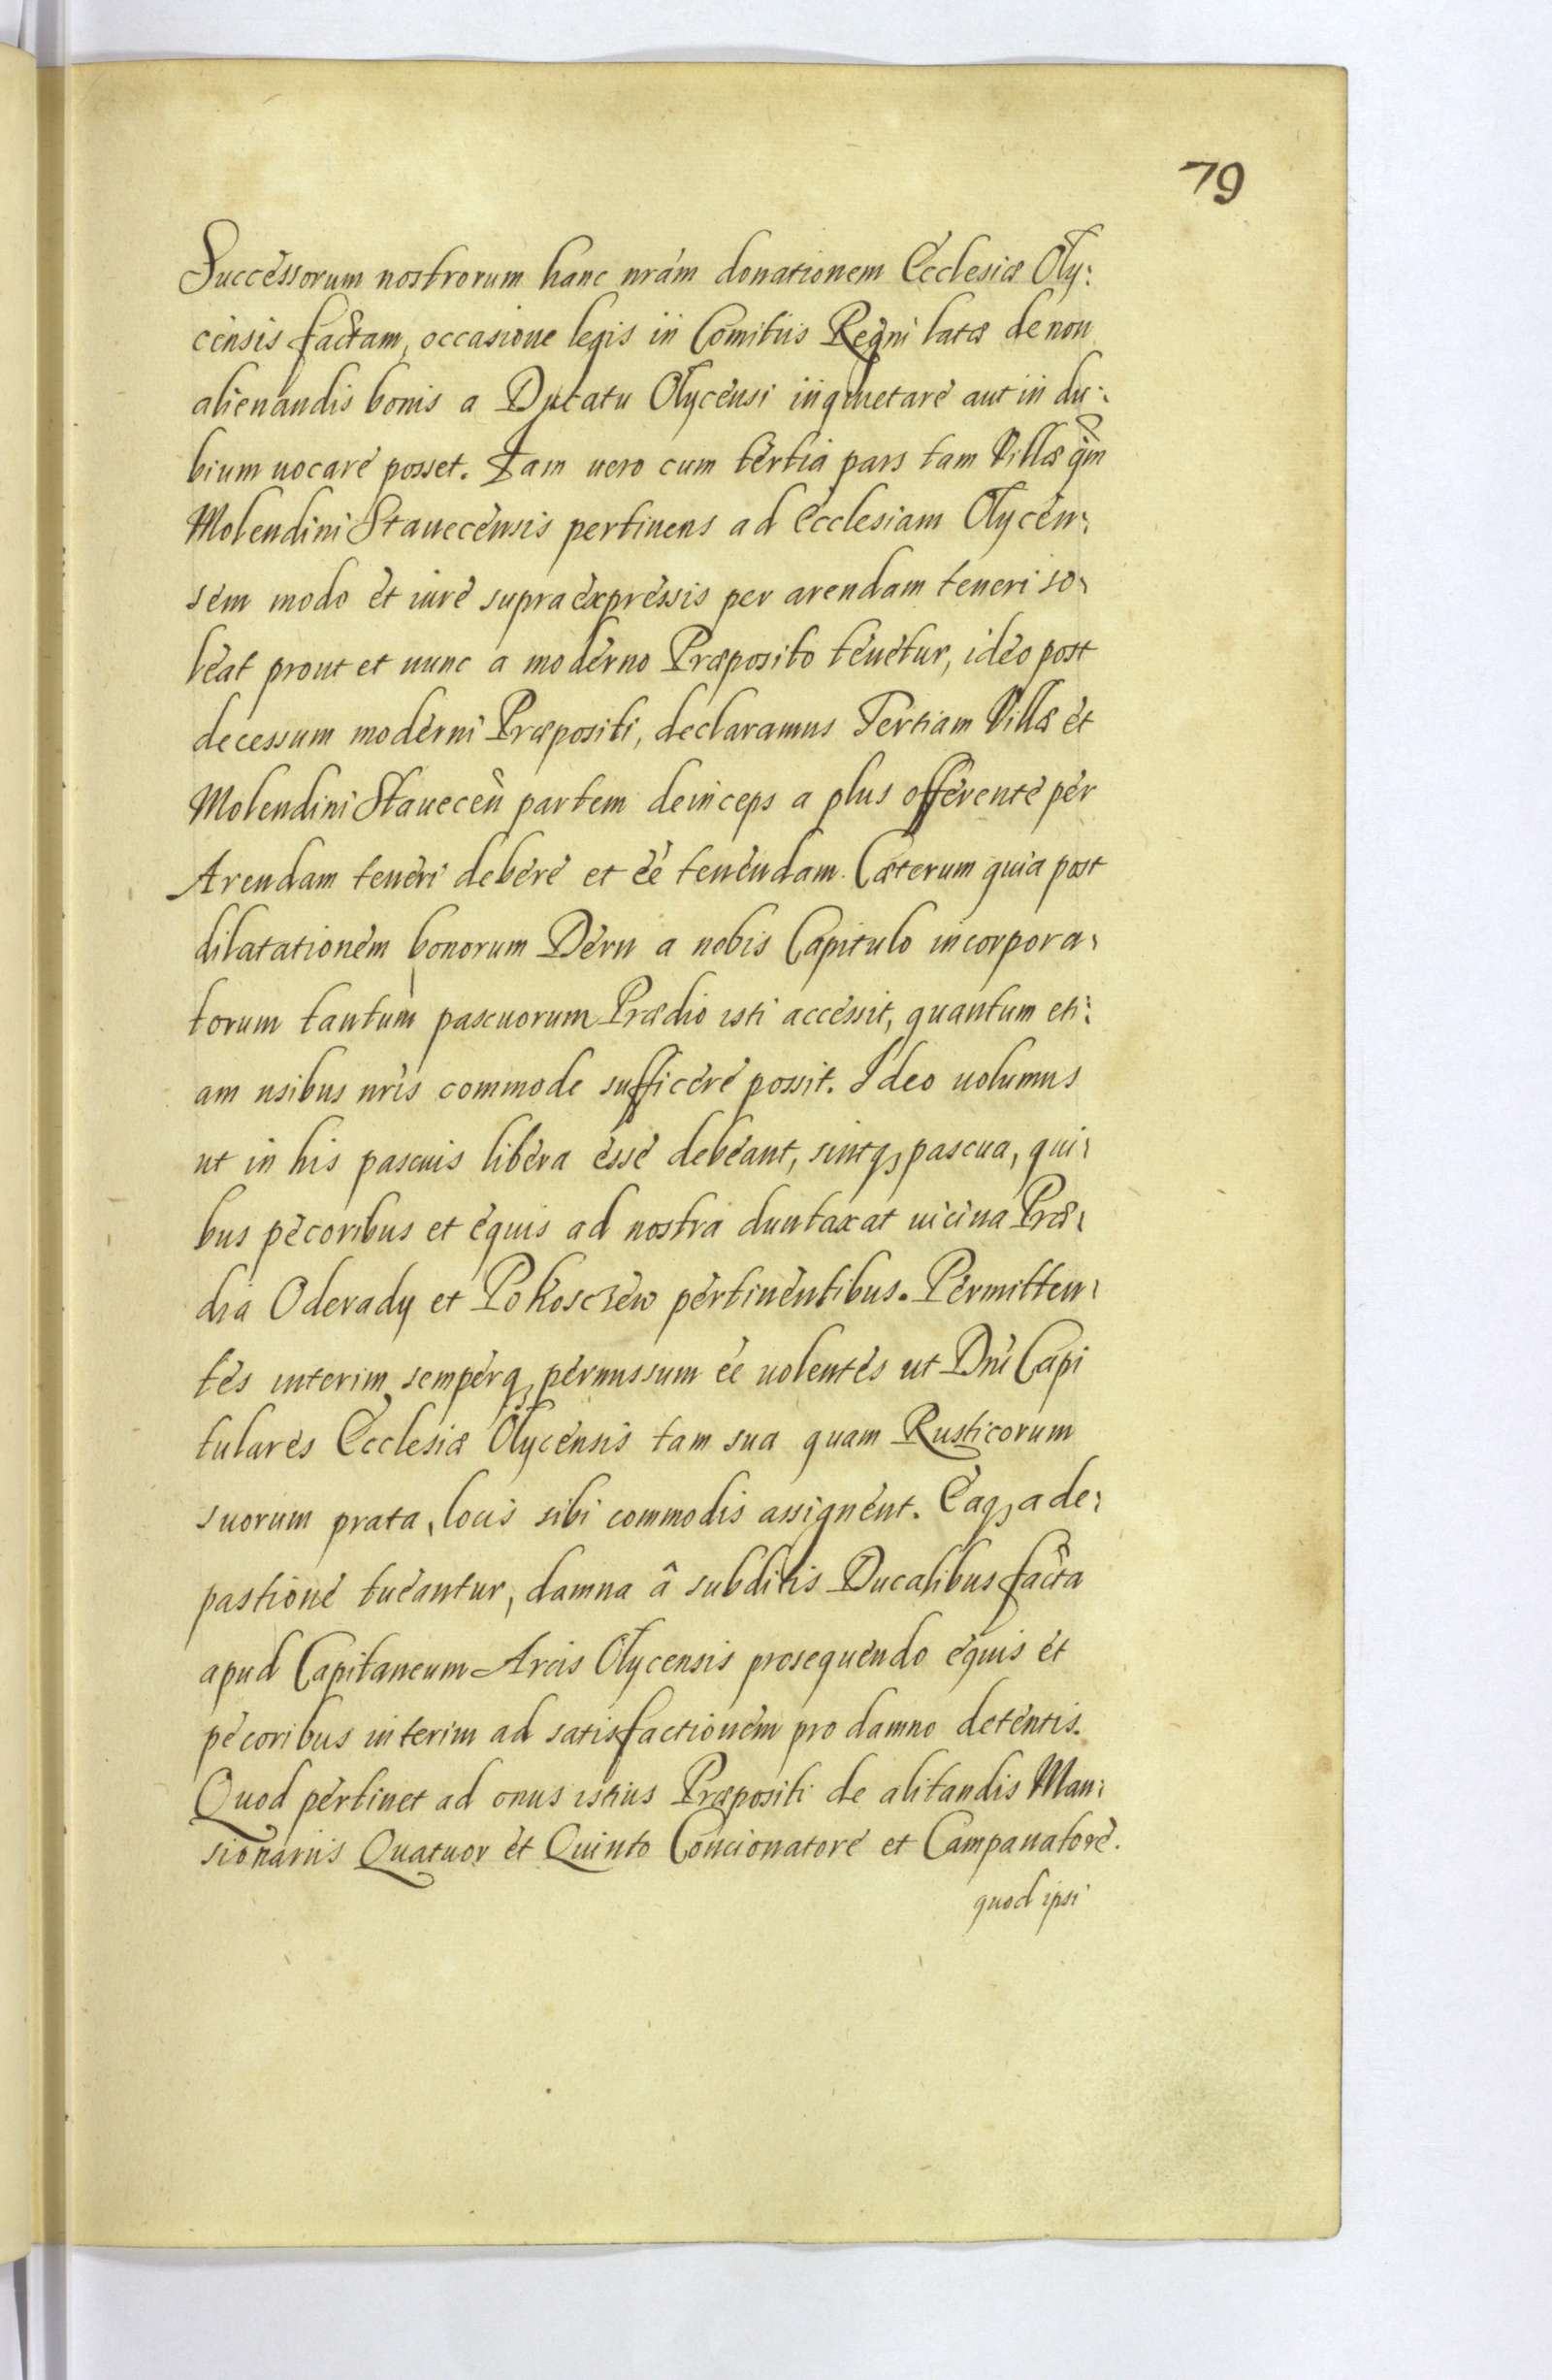 79
Successorum nostrorum hanc nrám donationem Ecclesiæ Oly:
censis factam, occasione legis in Comitiis Regni latæ de non
alienandis bonis a Ducatu Olycensi inquietare aut in du:
bium uocare posset. Iam uero cum tertia pars tam Villæ qm
Molendini Stauecensis pertinens ad Ecclesiam Olycen:
sem modo et iure supra expressis per arendam teneri so:
leat prout et nunc a moderno Præposito tenetur, ideo post
decessum moderni Præpositi, declaramus Tertiam Villæ et
Molendini Stauecen partem deinceps a plus offerente per
Arendam teneri debere et éé tenendam. Cæterum quia post
dilatationem bonorum Dern a nobis Capitulo incorpora:
torum tantum pascuorum Prædio isti accessit, quantum eti:
am usibus nris commode sufficere possit. Ideo uolumus
ut in his pascuis libera esse debeant, sintq, pascua, qui:
bus pecoribus et equis ad nostra duntaxat uicina Præ:
dia Oderady et Pokosczew pertinentibus. Permitten:
tes interim semperq, permissum ée uolentes ut Dni Capi
tulares Ecclesiæ Olycensis tam sua quam Rusticorum
suorum prata, locis sibi commodis assignent. Eaq, a de:
pastione tueantur, damna â subditis Ducalibus facta
apud Capitaneum Arcis Olycensis prosequendo equis et
pecoribus interim ad satisfactionem pro damno detentis.
Quod pertinet ad onus istius Præpositi de alitandis Man:
sionariis Quatuor et Quinto Concionatore et Campanatore.
quod ipsi